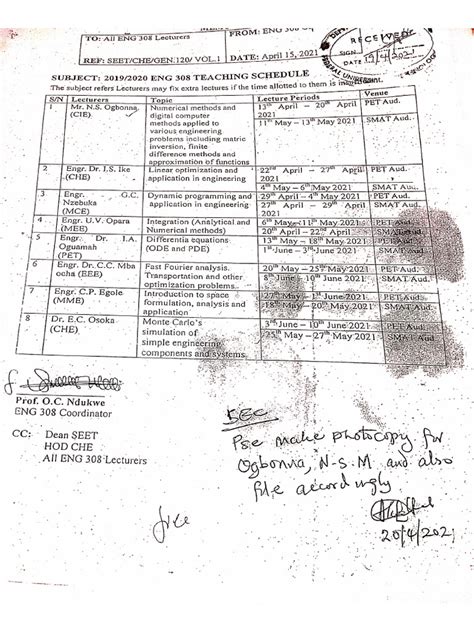 TO: All ENG 308 Lecturers
FROM: ENG 308
REF: SEET/CHE/GEN.120/ VOL.1
DATE: April 15, 2021
RECEIVED
SIGN
DATE 19/4/2021
SUBJECT: 2019/2020 ENG 308 TEACHING SCHEDULE
The subject refers Lecturers may fix extra lectures if the time allotted to them is
S/N Lecturers Topic Lecture Periods Venue
1 Mr. N.S. Ogbonna Numerical methods and 13th April – 20th April PET Aud.
(CIE) digital computer 2021
methods applied to 11th May – 13th May 2021 SMAT Aud.
various engineering
problems including matric
inversion, finite
difference methods and
approximation of functions
2 Engr. Dr. I.S. Ike Linear optimization and 22nd April – 27th April PET Aud.
(CHE) application in engineering 2021
4th May – 6th May 2021 SMAT Aud.
3 Engr. G.C. Dynamic programming and 29th April – 4th May 2021 PET Aud.
Nzebuka application in engineering 27th April – 29th April SMAT Aud.
(MCE) 2021
4 Engr. U.V. Opara Integration (Analytical and 6th May – 11th May 2021 PET Aud.
(MEE) Numerical methods) 20th April – 22nd April SMAT Aud.
5 Engr. Dr. I.A. Differentia equations 13th May – 18th May 2021 PET Aud.
Oguamah (ODE and PDE) 1st June – 3rd June 2021 SMAT Aud.
(PET)
6 Engr. Dr. C.C. Mba Fast Fourier analysis. 20th May – 25th May 2021 PET Aud.
ocha (EEE) Transportation and other SMAT Aud.
optimization problems.
7 Engr. C.P. Egole Introduction to space 27th May – 1st June 2021 PET Aud.
(MME) formulation, analysis and 18th May – 20th May 2021 SMAT Aud.
application
8 Dr. E.C. Osoka Monte Carlo's 3rd June – 10th June 2021 PET Aud.
(CHE) simulation of 25th May – 27th May 2021 SMAT Aud.
simple engineering
components and systems.
Prof. O.C. Ndukwe
ENG 308 Coordinator
CC: Dean SEET
HOD CHE
All ENG 308 Lecturers
SEC
Pse make photocopy for
Ogbonna, N.S.M and also
file accordingly
20/4/2021